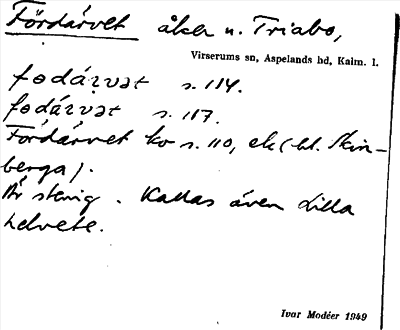 Fördärvet åker u. Triabo,
Virserums sn, Aspelands hd, Kalm. l.
fodárvət s. 114.
fodárvət s. 117.
Fördärvet ko s. 110, ek (bl. Skin-
berga).
Är stenig. Kallas även Lilla
helvete.
Ivar Modéer 1949